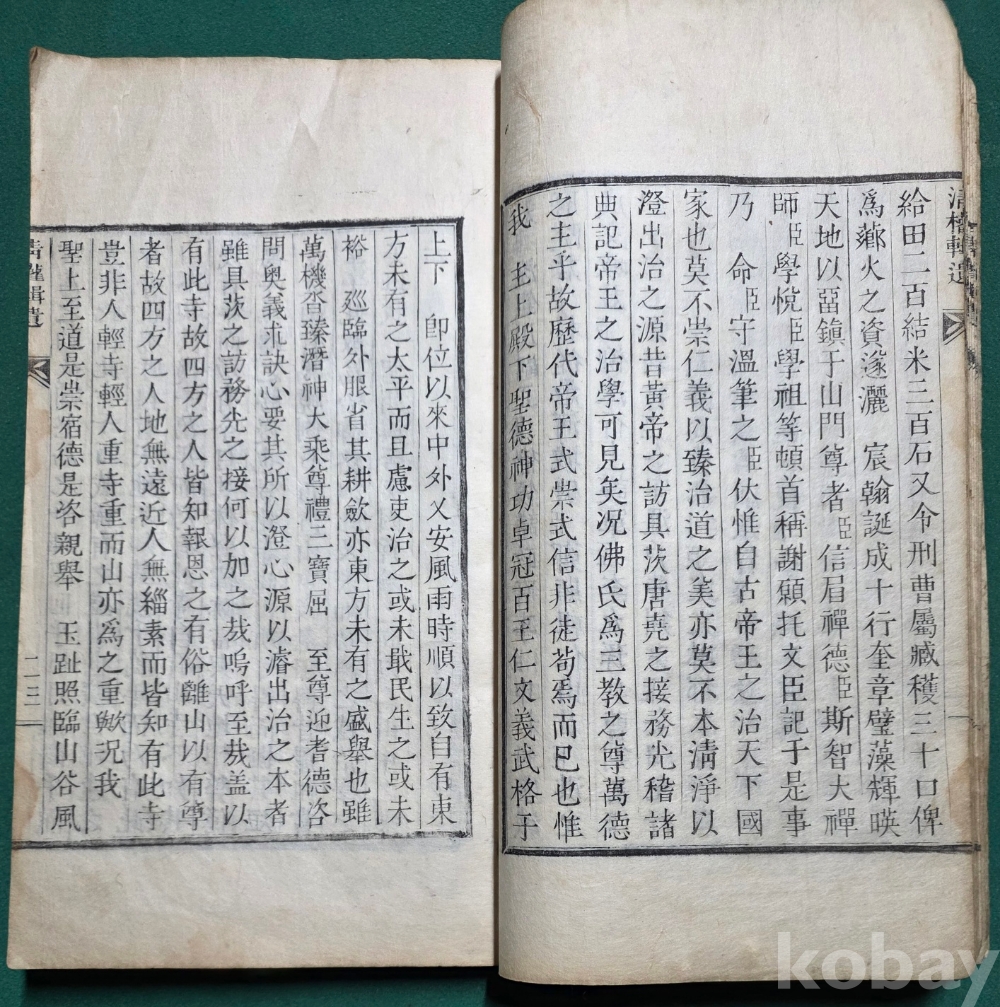 給田二百結米三百石又令刑曹屬臧穫三十口俾
爲薌火之資遂灑　宸翰誕成十行奎章璧藻輝暎
天地以畱鎭于山門尊者臣信眉禪德臣斯智大禪
師臣學悅臣學祖等頓首稱謝願托文臣記于是事
乃　命臣守溫筆之臣伏惟自古帝王之治天下國
家也莫不崇仁義以臻治道之美亦莫不本淸淨以
澄出治之源昔黃帝之訪具茨唐堯之接務光稽諸
典記帝王之治學可見矣况佛氏爲三教之尊萬德
之主乎故歷代帝王式崇式信非徒苟焉而已也惟
我　主上殿下聖德神功卓冠百王仁文義武格于
上下　卽位以來中外乂安風雨時順以致自有東
方未有之太平而且慮吏治之或未戢民生之或未
裕　廵臨外服省其耕歛亦東方未有之盛舉也雖
萬機沓臻潛神大乘尊禮三寶屈　至尊迎耆德咨
問奥義求訣心要其所以澄心源以濬出治之本者
雖具茨之訪務光之接何以加之哉嗚呼至哉盖以
有此寺故四方之人皆知報恩之有俗離山以有尊
者故四方之人地無遠近人無緇素而皆知有此寺
豈非人輕寺輕人重寺重而山亦爲之重歟况我
聖上至道是崇宿德是咨親舉　玉趾照臨山谷風
輯遺
二三
kobay